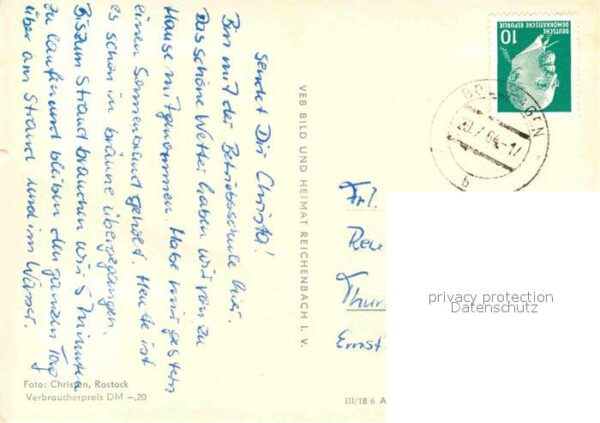 sendet Dir Christa!
Bin mit der Betriebsschule hier.
Das schöne Wetter haben wir von zu
Hause mitgenommen. Habe mir gestern
einen Sonnenbrand geholt. Heute ist
es schon in bräune übergegangen.
Bis zum Strand brauchen wir 5 Minuten
zu laufen und bleiben den ganzen Tag
über am Strand und im Wasser.
Foto: Christen, Rostock
Verbraucherpreis DM -,20
VEB BILD UND HEIMAT REICHENBACH I. V.
III/18 6 A
DEUTSCHE
DEMOKRATISCHE REPUBLIK
10
64
b
Frl.
Thur
Ernst
privacy protection
Datenschutz